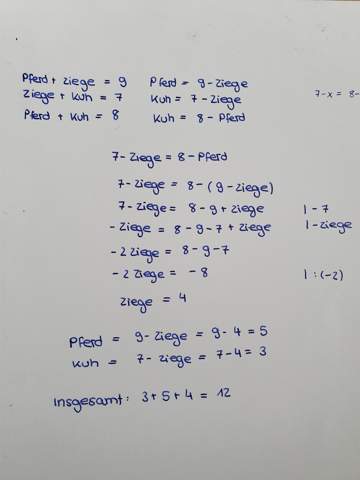 Pferd + Ziege = 9 Pferd = 9 - Ziege
Ziege + Kuh = 7 Kuh = 7 - Ziege 7-x = 8-
Pferd + Kuh = 8 Kuh = 8 - Pferd
7 - Ziege = 8 - Pferd
7 - Ziege = 8 - (9 - Ziege)
7 - Ziege = 8 - 9 + Ziege | - 7
- Ziege = 8 - 9 - 7 + Ziege | - Ziege
- 2 Ziege = 8 - 9 - 7
- 2 Ziege = - 8 | : (-2)
Ziege = 4
Pferd = 9 - Ziege = 9 - 4 = 5
Kuh = 7 - Ziege = 7 - 4 = 3
Insgesamt: 3 + 5 + 4 = 12